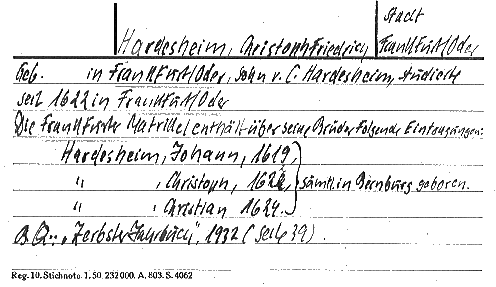 Stadt
Hardesheim, Christoph Friedrich, Frankfurt/Oder
Geb. in Frankfurt/Oder, Sohn v. C. Hardesheim, studierte
seit 1622 in Frankfurt/Oder
Die Frankfurter Matrikel enthält über seine Brüder folgende Eintragungen:
Hardesheim, Johann, 1619,
" , Christoph, 1622, sämtl. in Bernburg geboren.
" , Christian 1624.
B.Q.: "Zerbster Jahrbuch", 1932 (Seite 39).
Reg. 10. Stichnote. 1. 50. 232000. A. 803. S. 4062